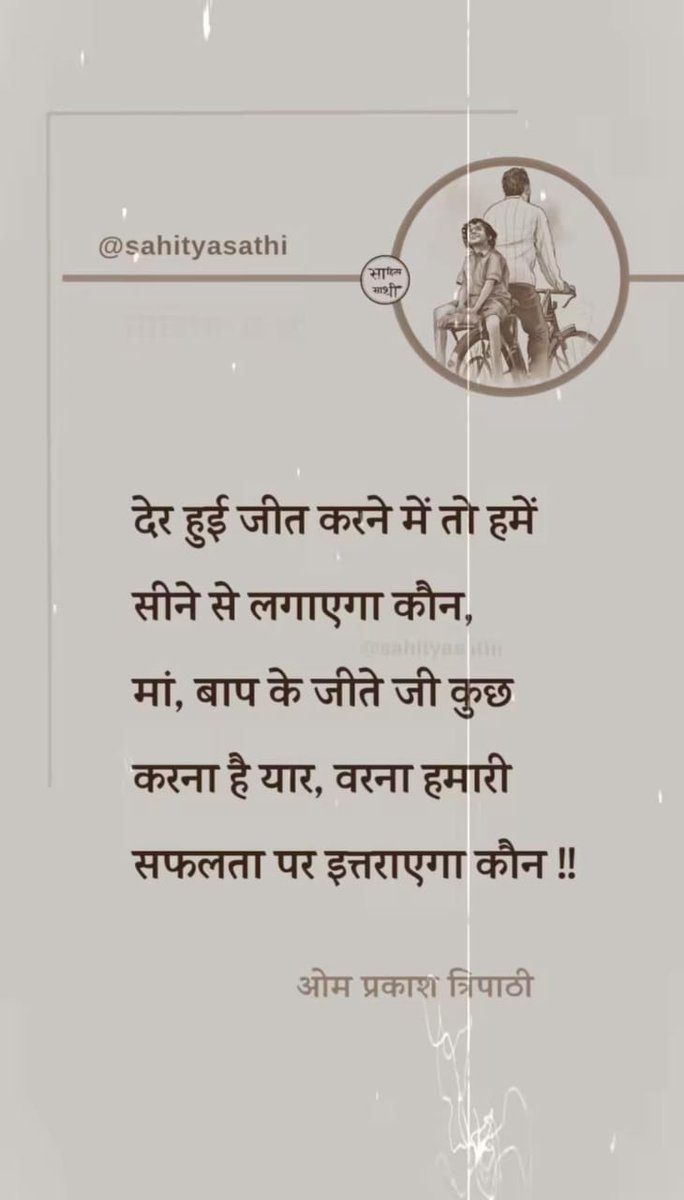 @sahityasathi
साहित्य
साथी
देर हुई जीत करने में तो हमें
सीने से लगाएगा कौन,
@sahityasathi
मां, बाप के जीते जी कुछ
करना है यार, वरना हमारी
सफलता पर इत्तराएगा कौन !!
ओम प्रकाश त्रिपाठी